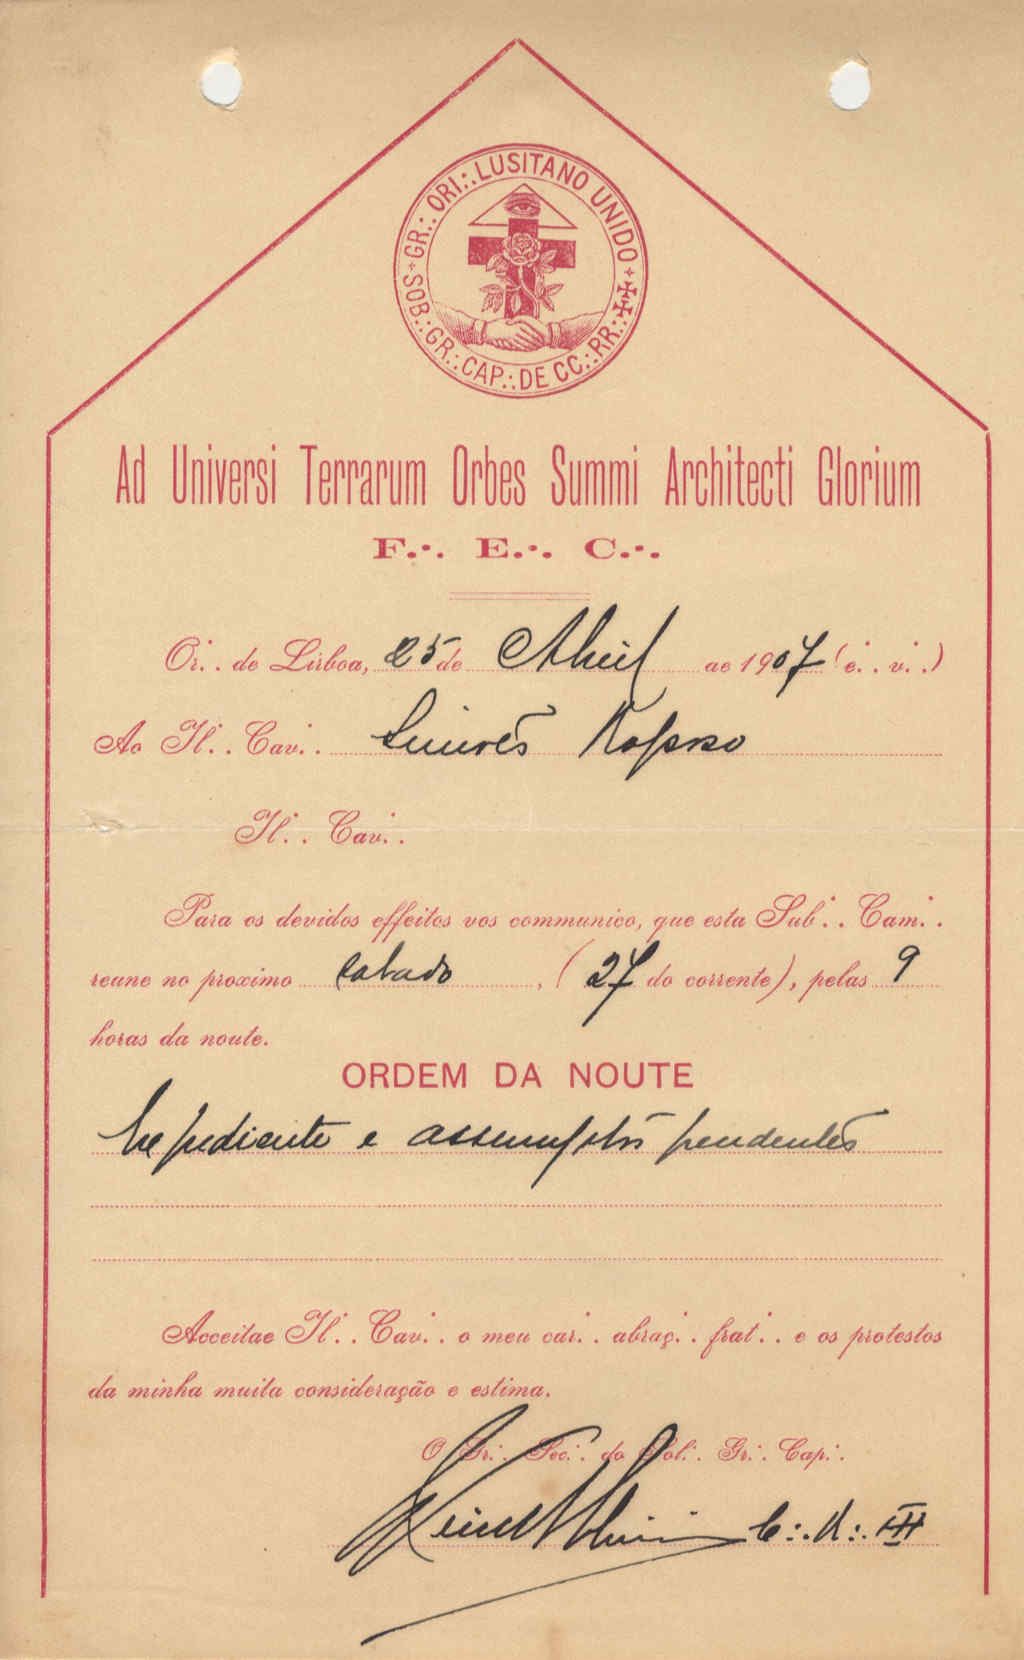 GR∴ ORI∴ LUSITANO UNIDO
SOB∴ GR∴ CAP∴ DE CC∴ RR∴
Ad Universi Terrarum Orbes Summi Architecti Glorium
F∴ E∴ C∴
Or∴ de Lisboa, 25 de Abril de 1907 (e∴ v∴)
Ao Il∴ Cav∴ Simões Raposo
Il∴ Cav∴
Para os devidos effeitos vos communico, que esta Sub∴ Cam∴
reune no proximo sabado, (27 do corrente), pelas 9
horas da noute.
ORDEM DA NOUTE
Expediente e assumptos pendentes
Acceitae Il∴ Cav∴ o meu car∴ abraç∴ frat∴ e os protestos
da minha muita consideração e estima.
O Gr∴ Sec∴ do Sob∴ Gr∴ Cap∴
C∴ R∴